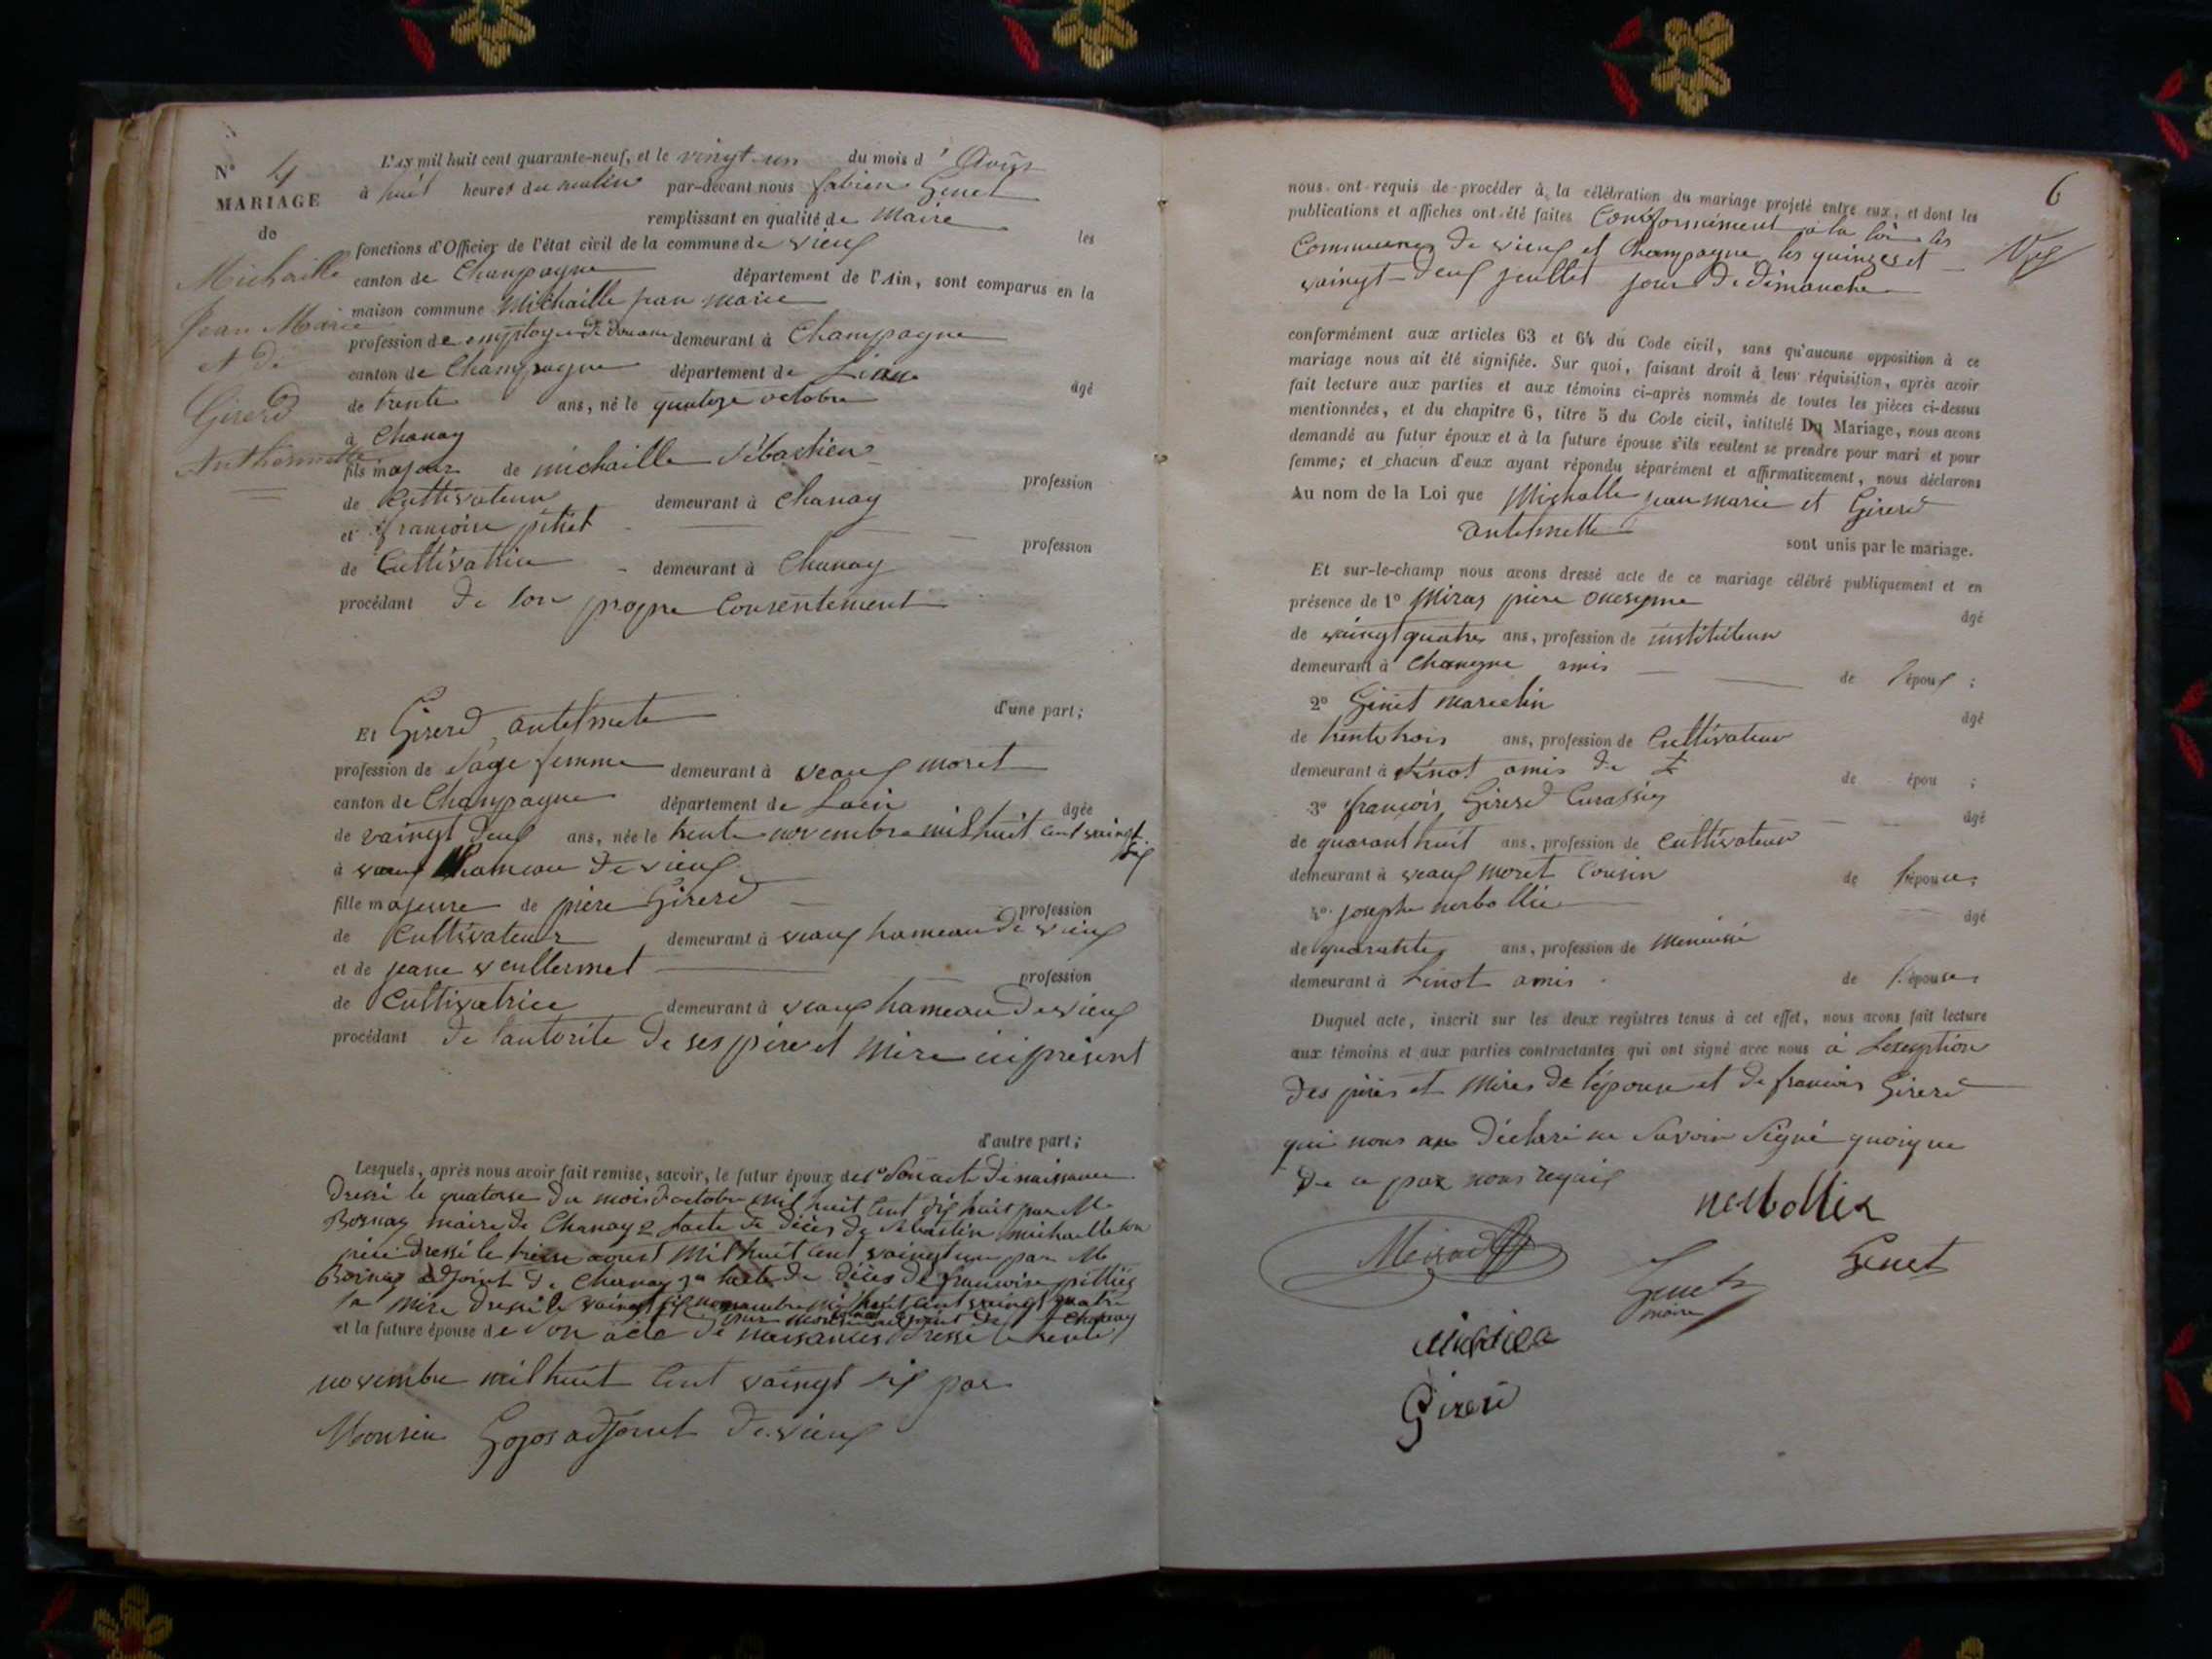 N° 4
MARIAGE
de
Michaille
Jean Marie
et de
Girerd
Anthelmette
L'AN mil huit cent quarante-neuf, et le vingt-un du mois d'Août
à huit heures du matin par-devant nous fabien Genet
remplissant en qualité de Maire les
fonctions d'Officier de l'état civil de la commune de vieux
canton de Champagne département de l'Ain, sont comparus en la
maison commune Michaille jean marie
profession de employé de Douane demeurant à Champagne
canton de Champagne département de Lain âgé
de trente ans, né le quatorze octobre
à Chanay
fils majeur de michaille Sébastien profession
de Cultivateur demeurant à Chanay
et françoise pitiet profession
de Cultivatrice demeurant à Chanay
procédant de son propre Consentement
d'une part;
Et Girerd antelmete
profession de Sage femme demeurant à veaux moret
canton de Champagne département de Lain âgée
de vaingt deux ans, née le trente novembre mil huit cent vaingt six
à vaux hameau de vieux
fille majeure de piere Girerd profession
de Cultivateur demeurant à veaux hameau de vieux
et de jeane veullermet profession
de Cultivatrice demeurant à veaux hameau de vieux
procédant de l'autorite de ses père et mère ici présent
d'autre part;
Lesquels, après nous avoir fait remise, savoir, le futur époux de 1° Son acte de naissance
dressé le quatorse du mois d'octobre mil huit cent dix huit par M.
Bornay maire de Chanay 2 l'acte de décès de Sebastien michaille son
père dressé le treise aoust mil huit cent vaingt un par M.
adjoint de Chanay 3° l'acte de décès de françoise
sa mère dressé le vaingt six novembre mil huit cent vaingt quatre
par adjoint de Chanay
et la future épouse de Son acte de naissances dressé le trente
novembre mil huit cent vaingt six par
Monsieu Gojos adjoint de vieux
6
nous ont requis de procéder à la célébration du mariage projeté entre eux, et dont les
publications et affiches ont été faites Conformément a la loi les
Communes de vieux et Champagne les quinzes et
vaingt-deux juillet jour de dimanche
conformément aux articles 63 et 64 du Code civil, sans qu'aucune opposition à ce
mariage nous ait été signifiée. Sur quoi, faisant droit à leur réquisition, après avoir
fait lecture aux parties et aux témoins ci-après nommés de toutes les pièces ci-dessus
mentionnées, et du chapitre 6, titre 5 du Code civil, intitulé Du Mariage, nous avons
demandé au futur époux et à la future épouse s'ils veulent se prendre pour mari et pour
femme; et chacun d'eux ayant répondu séparément et affirmativement, nous déclarons
Au nom de la Loi que Michalle jean marie et Girerd
antelmette sont unis par le mariage.
Et sur-le-champ nous avons dressé acte de ce mariage célébré publiquement et en
présence de 1° piere âgé
de vaingt quatres ans, profession de instituteur
demeurant à amis de l'époux ;
2° Ginet Marcelin âgé
de trente trois ans, profession de Cultivateur
demeurant à Linot amis de de épou ;
3° françois Girerd Curassier âgé
de quarant huit ans, profession de Cultivateur
demeurant à veaux moret Cousin de l'épouse;
4° josephe nerbollier âgé
de quarante ans, profession de menuisié
demeurant à Linot amis de l'épouse;
Duquel acte, inscrit sur les deux registres tenus à cet effet, nous avons fait lecture
aux témoins et aux parties contractantes qui ont signé avec nous à Lexeuption
des pères et mères de l'épouse et de françois Girerd
qui nous déclaré ne Savoir Signé quoique
de ce par nous
nerbollier
Genet
Genet
maire
Girerd